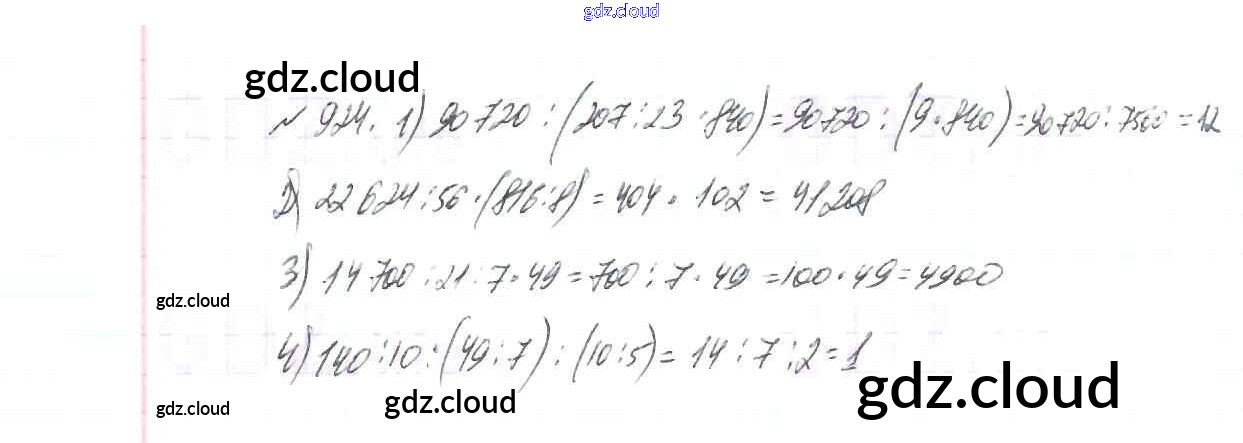 gdz.cloud
gdz.cloud
№ 924. 1) 90720 : (207 : 23 · 840) = 90720 : (9 · 840) = 90720 : 7560 = 12
2) 22624 : 56 · (816 : 8) = 404 · 102 = 41208
3) 14700 : 21 : 7 · 49 = 700 : 7 · 49 = 100 · 49 = 4900
gdz.cloud
4) 140 : 10 : (49 : 7) : (10 : 5) = 14 : 7 : 2 = 1
gdz.cloud
gdz.cloud
gdz.cloud